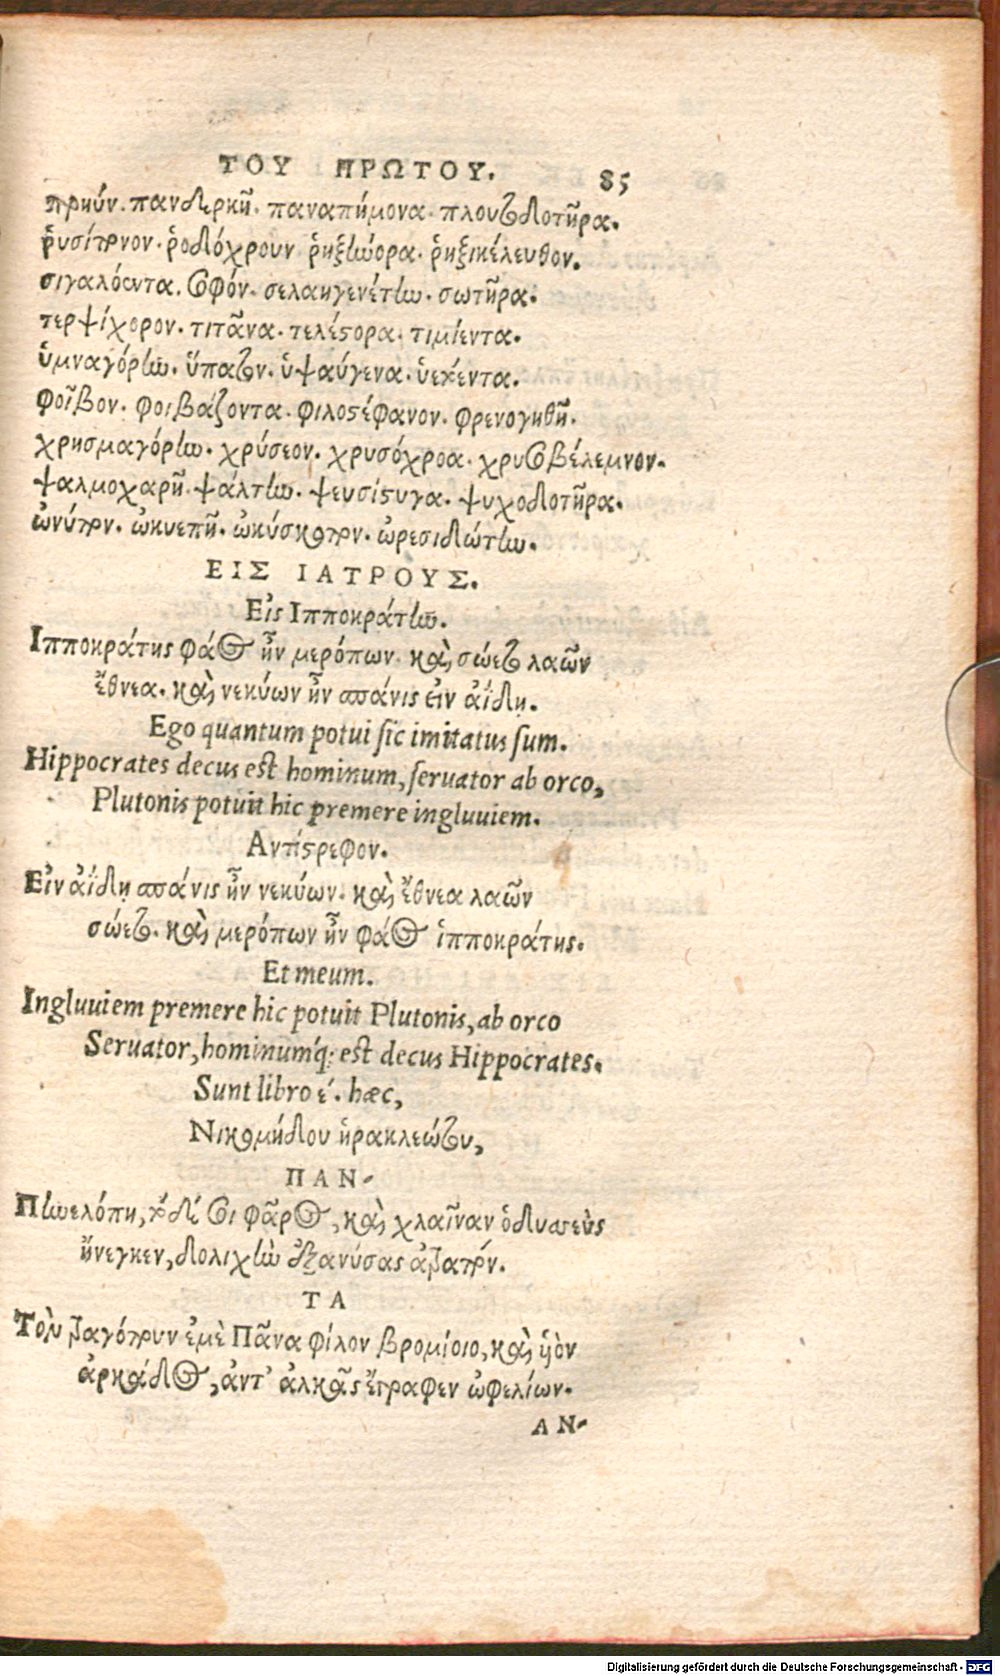 ΤΟΥ ΠΡΩΤΟΥ. 85
πρηύν. πανδερκῆ. παναπήμονα. πλουτοδοτῆρα.
ῥυσίπονον. ῥοδόχρουν ῥηξήνορα. ῥηξικέλευθον.
σιγαλόεντα. σοφόν. σελαηγενέτην. σωτῆρα.
τερψίχορον. τιτᾶνα. τελέστορα. τιμήεντα.
ὑμναγόρην. ὕπατον. ὑψαύγενα. ὑήεντα.
φοῖβον. φοιβάζοντα. φιλοστέφανον. φρενογηθῆ.
χρησμαγόρην. χρύσεον. χρυσόχροα. χρυσοβέλεμνον.
ψαλμοχαρῆ. ψάλτην. ψευσίστυγα. ψυχοδοτῆρα.
ὠκύπουν. ὠκυεπῆ. ὠκύσκοπον. ὠρεσιδώτην.
ΕΙΣ ΙΑΤΡΟΥΣ.
Εἰς Ιπποκράτην.
Ιπποκράτης φάος ἦν μερόπων. καὶ σώετο λαῶν
ἔθνεα. καὶ νεκύων ἦν σπάνις εἰν ἀΐδῃ.
Ego quantum potui sic imitatus sum.
Hippocrates decus est hominum, seruator ab orco,
Plutonis potuit hic premere ingluuiem.
Αντίστρεφον.
Εἰν ἀΐδῃ σπάνις ἦν νεκύων. καὶ ἔθνεα λαῶν
σώετο. καὶ μερόπων ἦν φάος ἱπποκράτης.
Et meum.
Ingluuiem premere hic potuit Plutonis, ab orco
Seruator, hominumq́; est decus Hippocrates.
Sunt libro έ. hæc,
Νικομήδου ἡρακλεώτου,
ΠΑΝ-
Πηνελόπη, τόδε σοι φᾶρος, καὶ χλαῖναν ὀδυσσεὺς
ἤνεγκεν, δολιχὴν ἐξανύσας ἀτραπόν.
ΤΑ
Τὸν τραγόπουν ἐμὲ Πᾶνα φίλον βρομίοιο, καὶ υἱὸν
ἀρκάδος, ἀντ' ἀλκᾶς ἔγραφεν ὠφελίων.
ΑΝ-
Digitalisierung gefördert durch die Deutsche Forschungsgemeinschaft - DFG